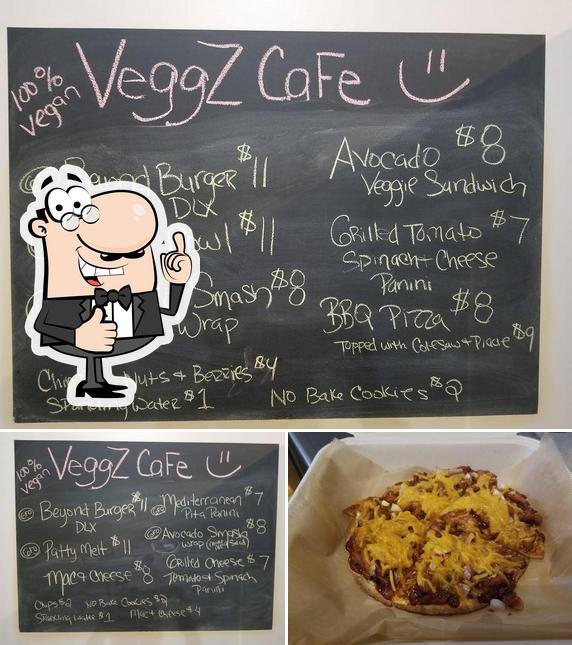 100% vegan
VeggZ CaFe
Beyond Burger $11
DLX
$11
Smash $8
Wrap
Nuts & Berries $4
Sparkling Water $1
Avocado $8
Veggie Sandwich
Grilled Tomato $7
Spinach + Cheese
Panini
BBQ Pizza $8
Topped with Coleslaw + Pickle $9
No Bake Cookies $2
100% vegan
VeggZ CaFe
GFO Beyond Burger $11
DLX
GFO Patty Melt $11
Mac + Cheese $8
Chips $2 No Bake Cookies $2
Sparkling Water $1 Mac + Cheese $4
Mediterranean $7
Pita Panini
GFO Avocado Smash $8
Wrap
Grilled Cheese $7
Tomato + Spinach
Panini